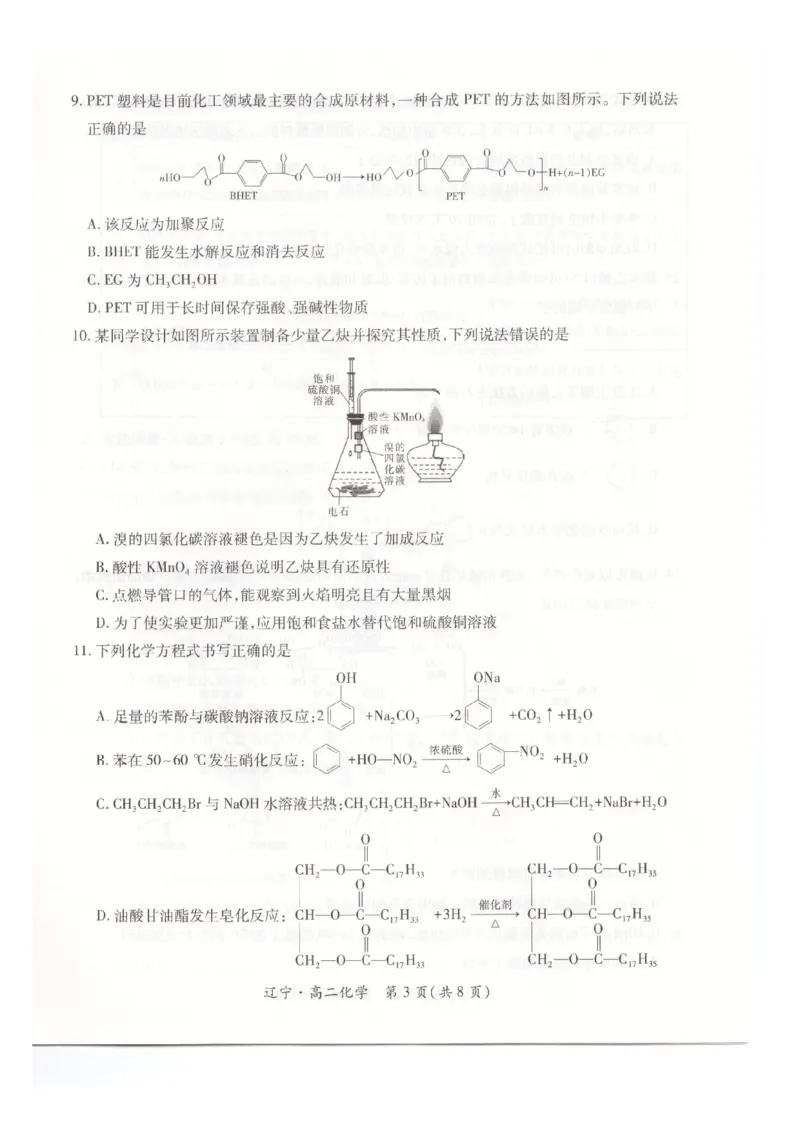 9. PET 塑料是目前化工领域最主要的合成原材料,一种合成 PET 的方法如图所示。下列说法
正确的是
nHO O O O O OH ⟶ HO O O O O H+(n-1)EG
n
BHET PET
A. 该反应为加聚反应
B. BHET 能发生水解反应和消去反应
C. EG 为 CH₃CH₂OH
D. PET 可用于长时间保存强酸、强碱性物质
10. 某同学设计如图所示装置制备少量乙炔并探究其性质,下列说法错误的是
饱和
硫酸铜
溶液
酸性 KMnO₄
溶液
溴的
四氯
化碳
溶液
电石
A. 溴的四氯化碳溶液褪色是因为乙炔发生了加成反应
B. 酸性 KMnO₄ 溶液褪色说明乙炔具有还原性
C. 点燃导管口的气体,能观察到火焰明亮且有大量黑烟
D. 为了使实验更加严谨,应用饱和食盐水替代饱和硫酸铜溶液
11. 下列化学方程式书写正确的是
OH ONa
A. 足量的苯酚与碳酸钠溶液反应:2 +Na₂CO₃ ⟶2 +CO₂↑+H₂O
B. 苯在 50~60 ℃发生硝化反应: +HO—NO₂ 浓硫酸 △ —NO₂ +H₂O
C. CH₃CH₂CH₂Br 与 NaOH 水溶液共热:CH₃CH₂CH₂Br+NaOH 水 △ CH₃CH=CH₂+NaBr+H₂O
O O
CH₂—O—C—C₁₇H₃₃ CH₂—O—C—C₁₇H₃₅
O O
D. 油酸甘油酯发生皂化反应: CH—O—C—C₁₇H₃₃ +3H₂ 催化剂 △ CH—O—C—C₁₇H₃₅
O O
CH₂—O—C—C₁₇H₃₃ CH₂—O—C—C₁₇H₃₅
辽宁·高二化学 第 3 页(共 8 页)